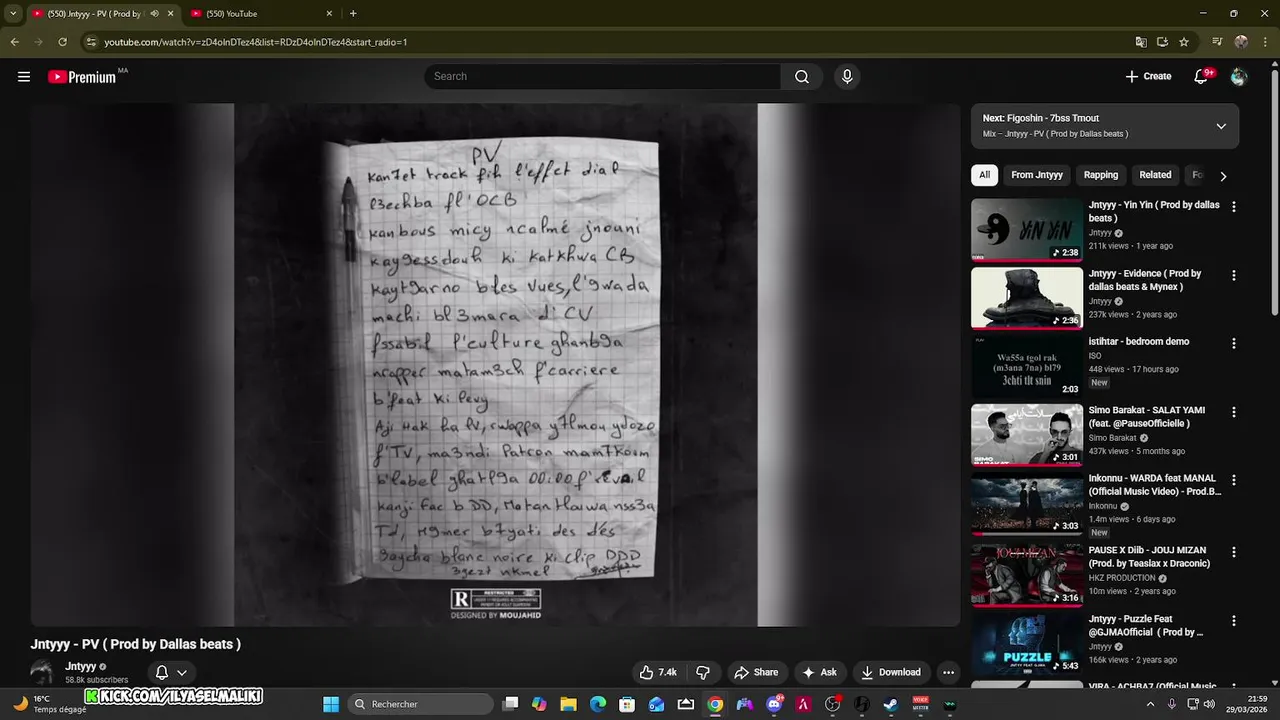 (550) Jntyyy - PV ( Prod by
(550) YouTube
youtube.com/watch?v=zD4oInDTez4&list=RDzD4oInDTez4&start_radio=1
Premium MA
Search
Create
9+
PV
kan7et track fih l'effet dial
l3echba fl'OCB
kanbous micy ncalmé jnouni
kay9essdouh ki katkhwa CB
kayt9arno bles vues, l'9wada
machi bl3mara d'CV
fssabil l'culture ghanb9a
nrapper matam3ch f'carriere
b'feat ki levy
Aji Hak ha lV, rwappa y7lmou ydozo
f'TV, ma3ndi Patron mam7koum
b'label ghatl9a 00:00 f'
kanji fac b DD, Matantlouwa nss3a
Td, M9mer b7yati des dés
9aycha blanc noire ki clip DDD
3gezt nkmel
R RESTRICTED
DESIGNED BY MOUJAHID
Jntyyy - PV ( Prod by Dallas beats )
Jntyyy
58.8k subscribers
7.4k
Share
Ask
Download
Next: Figoshin - 7bss Tmout
Mix – Jntyyy - PV ( Prod by Dallas beats )
All
From Jntyyy
Rapping
Related
Fo
YIN YIN
2:38
Jntyyy - Yin Yin ( Prod by dallas
beats )
Jntyyy
211k views • 1 year ago
2:36
Jntyyy - Evidence ( Prod by
dallas beats & Mynex )
Jntyyy
237k views • 2 years ago
Wa55a tgol rak
(m3ana 7na) bl79
3chti tlt snin
2:03
istihtar - bedroom demo
ISO
448 views • 17 hours ago
New
SIMO
BARAKAT
3:01
Simo Barakat - SALAT YAMI
(feat. @PauseOfficielle )
Simo Barakat
437k views • 5 months ago
3:03
Inkonnu - WARDA feat MANAL
(Official Music Video) - Prod.B...
Inkonnu
1.4m views • 6 days ago
New
JOUJ MIZAN
3:16
PAUSE X Diib - JOUJ MIZAN
(Prod. by Teaslax x Draconic)
HKZ PRODUCTION
10m views • 2 years ago
PUZZLE
5:43
Jntyyy - Puzzle Feat
@GJMAOfficial ( Prod by ...
Jntyyy
166k views • 2 years ago
VIRA - ACHBA7 (Official Music
16°C
Temps dégagé
KICK.COM/ILYASELMALIKI
Rechercher
9+
21:59
29/03/2026